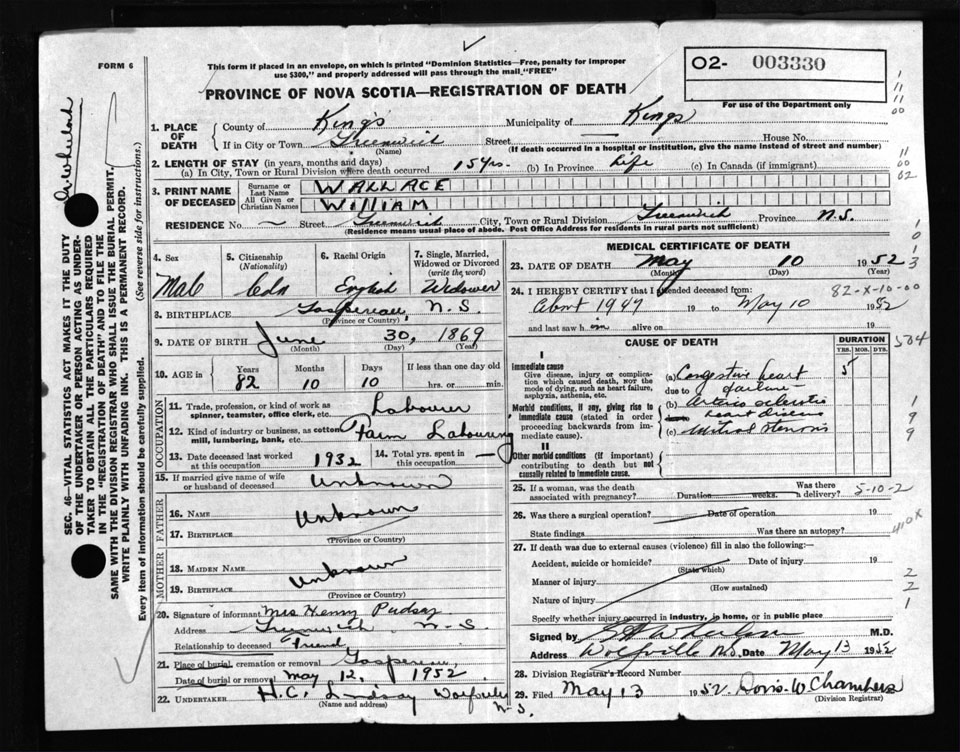 FORM 6
This form if placed in an envelope, on which is printed "Dominion Statistics—Free, penalty for improper
use $300," and properly addressed will pass through the mail "FREE"
O2- 003330
For use of the Department only
PROVINCE OF NOVA SCOTIA—REGISTRATION OF DEATH
SEC. 46—VITAL STATISTICS ACT MAKES IT THE DUTY
OF THE UNDERTAKER OR PERSON ACTING AS UNDER-
TAKER TO OBTAIN ALL THE PARTICULARS REQUIRED
IN THE "REGISTRATION OF DEATH" AND TO FILE THE
SAME WITH THE DIVISION REGISTRAR WHO SHALL ISSUE THE BURIAL PERMIT.
WRITE PLAINLY WITH UNFADING INK. THIS IS A PERMANENT RECORD.
Every item of information should be carefully supplied. (See reverse side for instructions.)
1. PLACE OF DEATH
County of King's Municipality of Kings
If in City or Town Greenwich Street — House No.
(Name) (If death occurred in a hospital or institution, give the name instead of street and number)
2. LENGTH OF STAY (in years, months and days)
(a) In City, Town or Rural Division where death occurred 15 yrs. (b) In Province Life (c) In Canada (if immigrant)
3. PRINT NAME OF DECEASED
Surname or Last Name WALLACE
All Given or Christian Names WILLIAM
RESIDENCE No. — Street Greenwich City, Town or Rural Division Greenwich Province N.S.
(Residence means usual place of abode. Post Office Address for residents in rural parts not sufficient)
4. Sex Male
5. Citizenship (Nationality) Cdn
6. Racial Origin English
7. Single, Married, Widowed or Divorced (write the word) Widower
8. BIRTHPLACE Gaspereau, N.S.
(Province or Country)
9. DATE OF BIRTH June 30, 1869
(Month) (Day) (Year)
10. AGE in Years 82 Months 10 Days 10 If less than one day old hrs. or min.
OCCUPATION
11. Trade, profession, or kind of work as spinner, teamster, office clerk, etc. Labourer
12. Kind of industry or business, as cotton mill, lumbering, bank, etc. Farm Labouring
13. Date deceased last worked at this occupation 1932
14. Total yrs. spent in this occupation —
15. If married give name of wife or husband of deceased Unknown
FATHER
16. NAME Unknown
17. BIRTHPLACE
(Province or Country)
MOTHER
18. MAIDEN NAME Unknown
19. BIRTHPLACE
(Province or Country)
20. Signature of informant Mrs Henry Pudsey
Address Greenwich, N.S.
Relationship to deceased Friend
21. Place of burial, cremation or removal Gaspereau
Date of burial or removal May 12, 1952
22. UNDERTAKER H.C. Lindsay Wolfville N.S.
(Name and address)
MEDICAL CERTIFICATE OF DEATH
23. DATE OF DEATH May 10 1952
(Month) (Day) (Year)
24. I HEREBY CERTIFY that I attended deceased from 82-X-10-00
About 1947 19 to May 10 1952
and last saw him alive on 19
CAUSE OF DEATH
DURATION
YRS. MOS. DYS.
I
Immediate cause
Give disease, injury or complication which caused death, NOT the mode of dying, such as heart failure, asphyxia, asthenia, etc.
(a) Congestive heart 5
due to failure
Morbid conditions, if any, giving rise to immediate cause (stated in order proceeding backwards from immediate cause).
(b) Arterio sclerotic
heart disease
(c) Mitral stenosis
II
Other morbid conditions (if important) contributing to death but not causally related to immediate cause.
25. If a woman, was the death associated with pregnancy? Duration weeks. Was there a delivery? 5-10-2
26. Was there a surgical operation? Date of operation 19
State findings Was there an autopsy?
27. If death was due to external causes (violence) fill in also the following:—
Accident, suicide or homicide? Date of injury 19
(State which)
Manner of injury
(How sustained)
Nature of injury
Specify whether injury occurred in industry, in home, or in public place
Signed by M.D.
Address Wolfville NS. Date May 13 1952
28. Division Registrar's Record Number
29. Filed May 13 1952. Doris W Chambers
(Division Registrar)